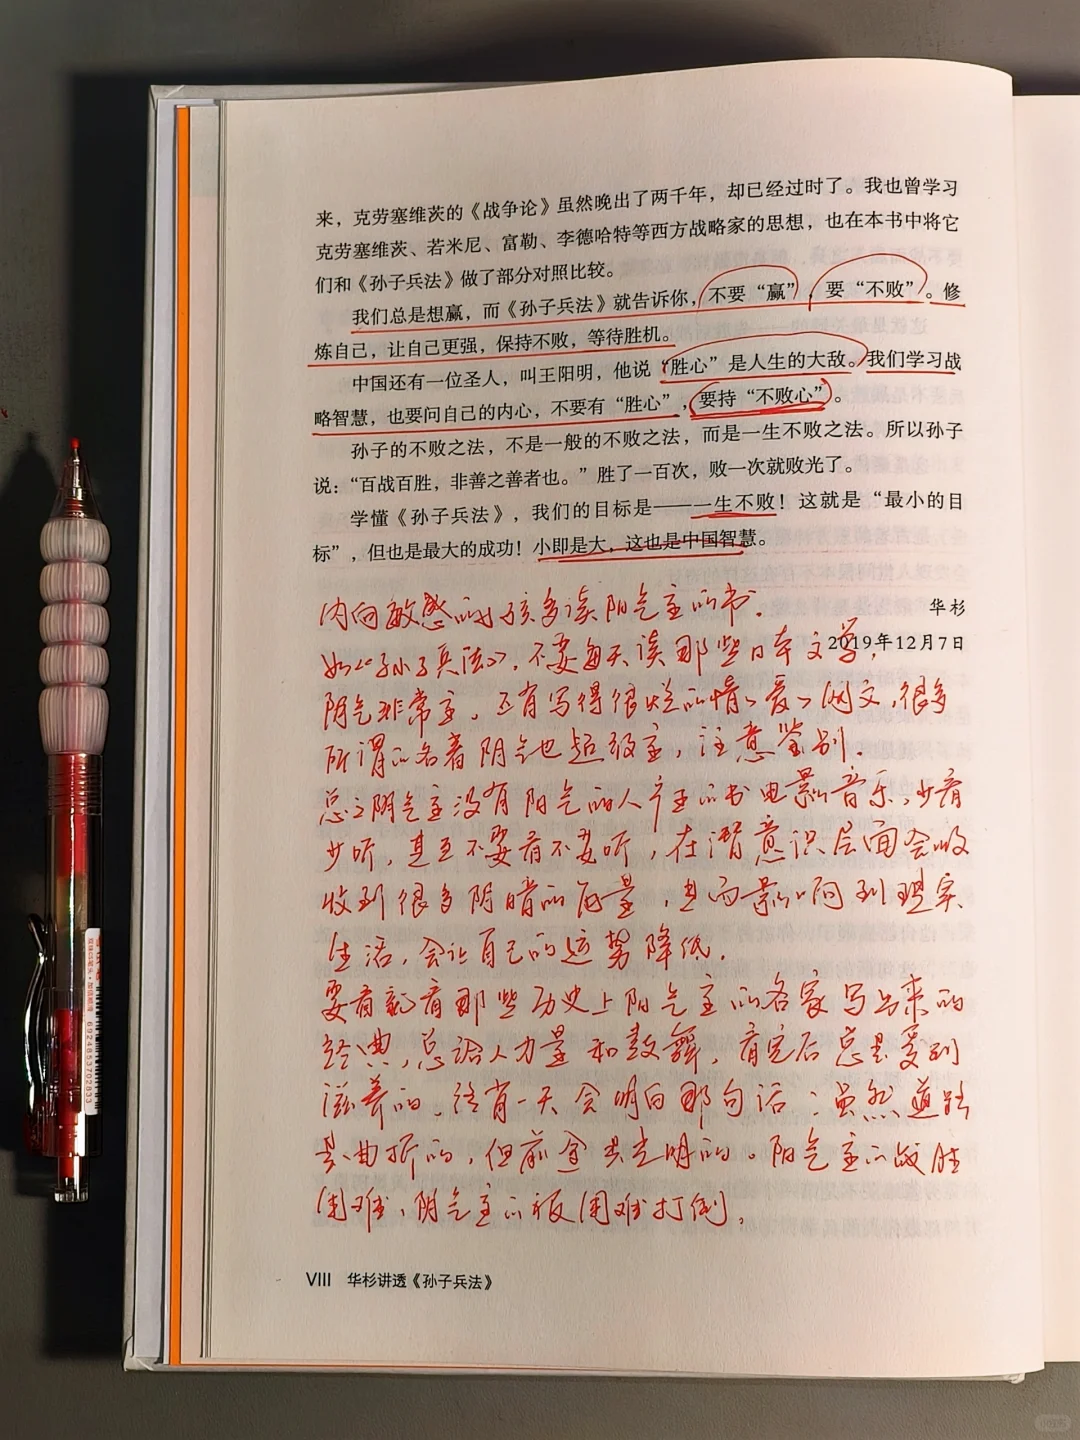 来，克劳塞维茨的《战争论》虽然晚出了两千年，却已经过时了。我也曾学习
克劳塞维茨、若米尼、富勒、李德哈特等西方战略家的思想，也在本书中将它
们和《孙子兵法》做了部分对照比较。
我们总是想赢，而《孙子兵法》就告诉你，不要“赢”，要“不败”。修
炼自己，让自己更强，保持不败，等待胜机。
中国还有一位圣人，叫王阳明，他说“胜心”是人生的大敌。我们学习战
略智慧，也要问自己的内心，不要有“胜心”，要持“不败心”。
孙子的不败之法，不是一般的不败之法，而是一生不败之法。所以孙子
说：“百战百胜，非善之善者也。”胜了一百次，败一次就败光了。
学懂《孙子兵法》，我们的目标是——一生不败！这就是“最小的目
标”，但也是最大的成功！小即是大，这也是中国智慧。
华杉
2019年12月7日
内向敏感的女孩多读阳气重的书.
如《孙子兵法》，不要每天读那些日本文学，
阴气非常重，还有写得很烂的情〻爱〻网文，很多
所谓的名著阴气也超级重，注意鉴别.
总之阴气重没有阳气的人产生的书电影音乐，少看
少听，甚至不要看不要听，在潜意识层面会吸
收到很多阴暗的能量，从而影响到现实
生活，会让自己的运势降低.
要看就看那些历史上阳气重的名家写出来的
经典，总给人力量和鼓舞，看完后总是受到
滋养的，终有一天会明白那句话：虽然道路
是曲折的，但前途是光明的。阳气重的战胜
困难，阴气重的被困难打倒.
VIII 华杉讲透《孙子兵法》
6924853702633
小红书